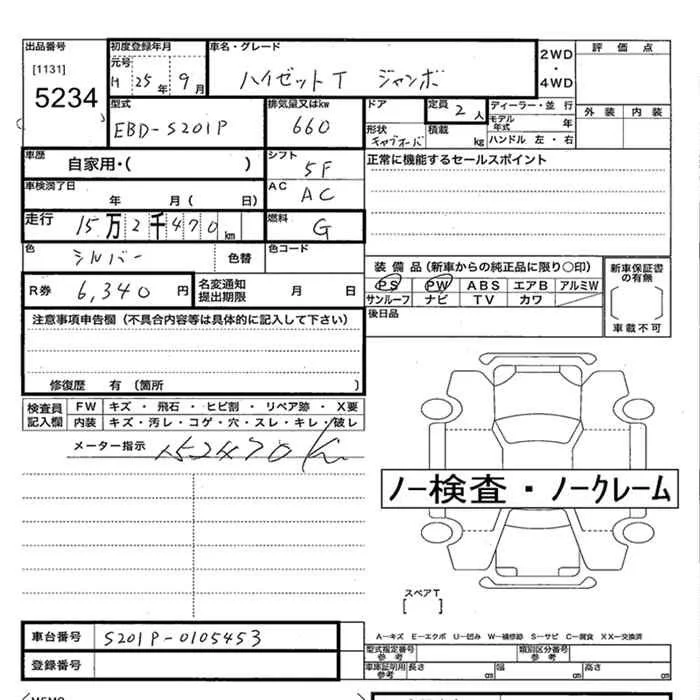 出品番号 初度登録年月 車名・グレード 2WD 評価点
[1131] 元号 ・
5234 H 25年 9月 ハイゼットT ジャンボ 4WD
型式 排気量又はkw ドア 定員 2人 ディーラー・並行 外装 内装
EBD-S201P 660 形状 キャブオーバ 積載 kg モデル年式 年
ハンドル 左・右
車歴 自家用・( ) シフト 5F 正常に機能するセールスポイント
車検満了日 年 月( 日) AC AC
走行 15万2千470km 燃料 G
色 シルバー 色替 色コード
装備品(新車からの純正品に限り○印) 新車保証書の有無
R券 6,340円 名変通知提出期限 月 日 PS PW ABS エアB アルミW
サンルーフ ナビ TV カワ
[ ]
車載不可
注意事項申告欄(不具合内容等は具体的に記入して下さい) 後日品
修復歴 有 (箇所 )
検査員記入欄 FW キズ・飛石・ヒビ割・リペア跡・X要
内装 キズ・汚レ・コゲ・穴・スレ・キレ・破レ
メーター指示 152470K
ノー検査・ノークレーム
スペアT
[ ]
車台番号 S201P-0105453
A―キズ E―エクボ U―凹み W―補修跡 S―サビ C―腐食 XX―交換済
登録番号 型式指定番号 参考 類別区分番号 参考
車庫証明用参考 長さ cm 幅 cm 高さ cm